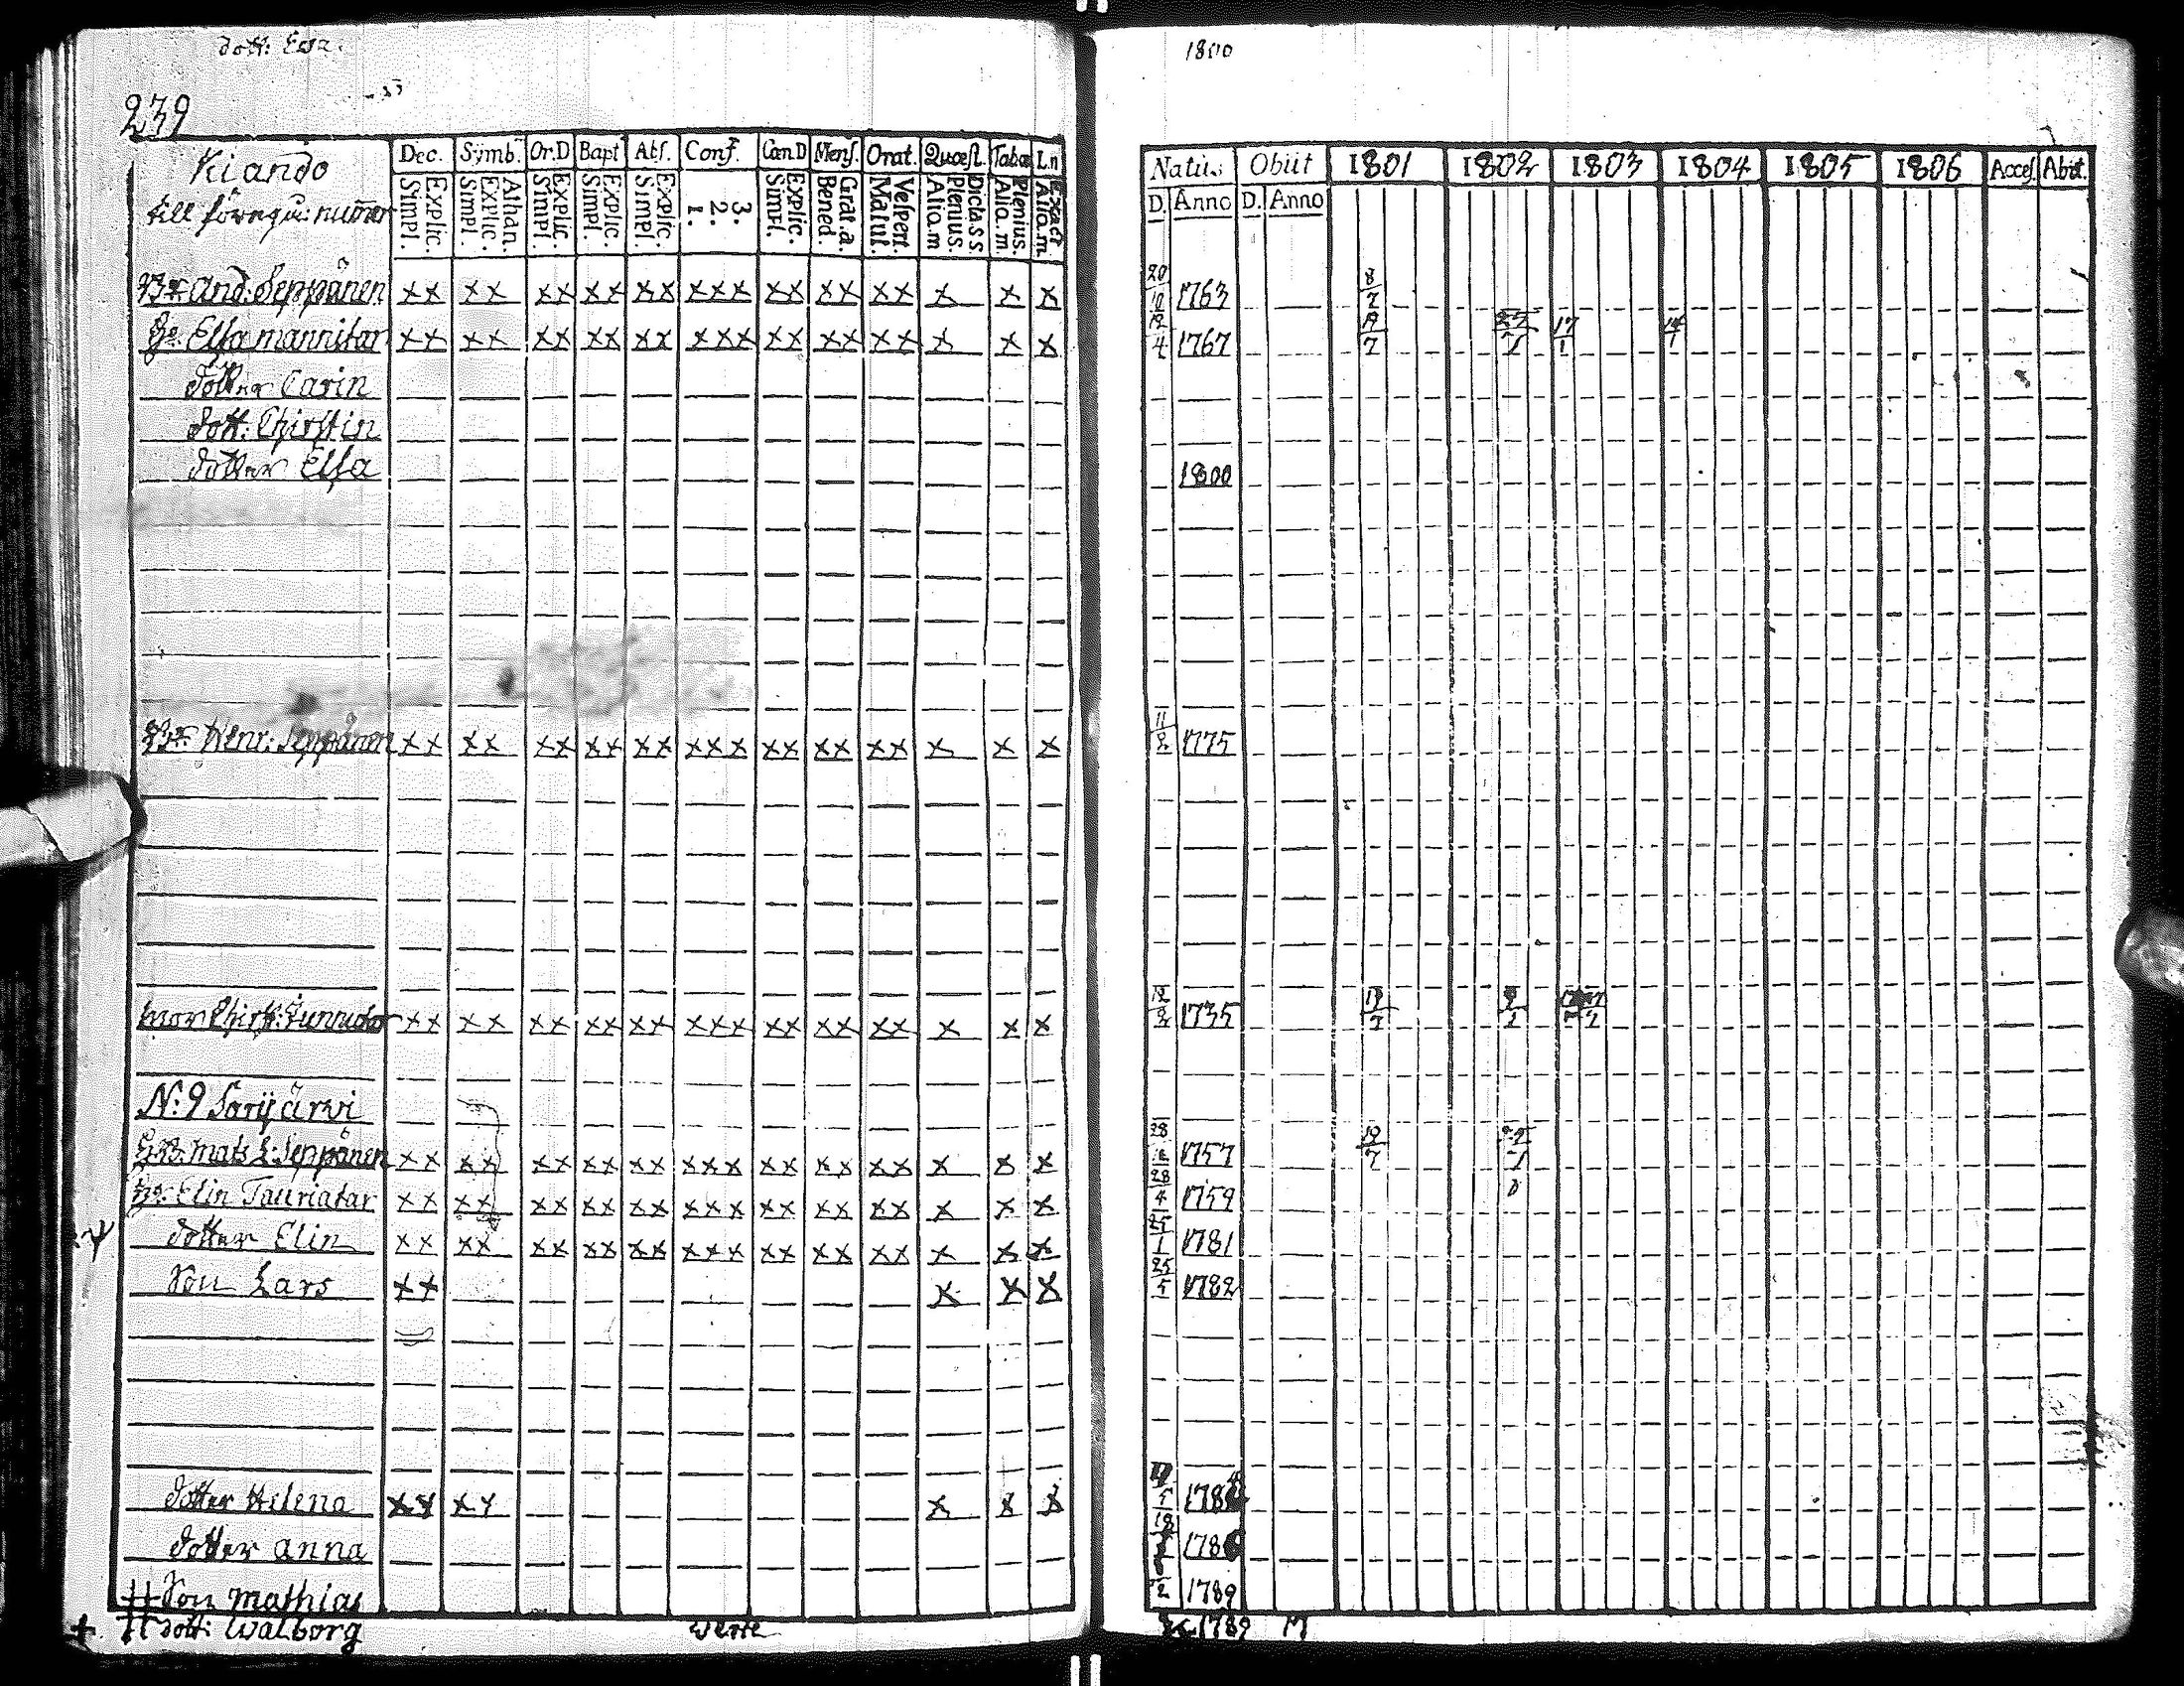 dott: Ewa.
1800
239
Kiando
till föregå: numer
Dec. Symb. Or.D Bapt Abs. Conf. Cœn.D Mens. Orat. Quæst. Taba Ln
Simpl. Explic. Simpl. Explic. Athan. Simpl. Explic. Simpl. Explic. Simpl. Explic. 1. 2. 3. Simpl. Explic. Bened. Grat.a. Matut. Vespert. Alia.m Plenius. Dicta.s s. Alia.m. Plenius. Alia.m. Exact
Natus Obiit 1801 1802 1803 1804 1805 1806 Acces. Abiit.
D. Anno D. Anno
Br And: Seppänen xx xx xx xx xx xxx xx xx xx x x x 20/10 1763 8/7
h: Elsa mannitar xx xx xx xx xx xxx xx xx xx x x x 12/4 1767 19/7 17/1
dotter Carin
dott: Chirstin
dotter Elsa 1800
Br Henr: Seppänen xx xx xx xx xx xxx xx xx xx x x x 11/2 1775
mor Chirst: xx xx xx xx xx xxx xx xx xx x x x 1735 19/7
N:9 Sarijärvi
mats L: Seppänen xx xx xx xx xx xxx xx xx xx x x x 28 1757 19/7
h: Elin Tauriatar xx xx xx xx xx xxx xx xx xx x x x 28/4 1759
dotter Elin xx xx xx xx xx xxx xx xx xx x x x 25/1 1781
Son Lars xx x x x 25/5 1782
dotter Helena xx xx x x x
dotter anna
Son mathias 1789
dott: Walborg 1789
Verte